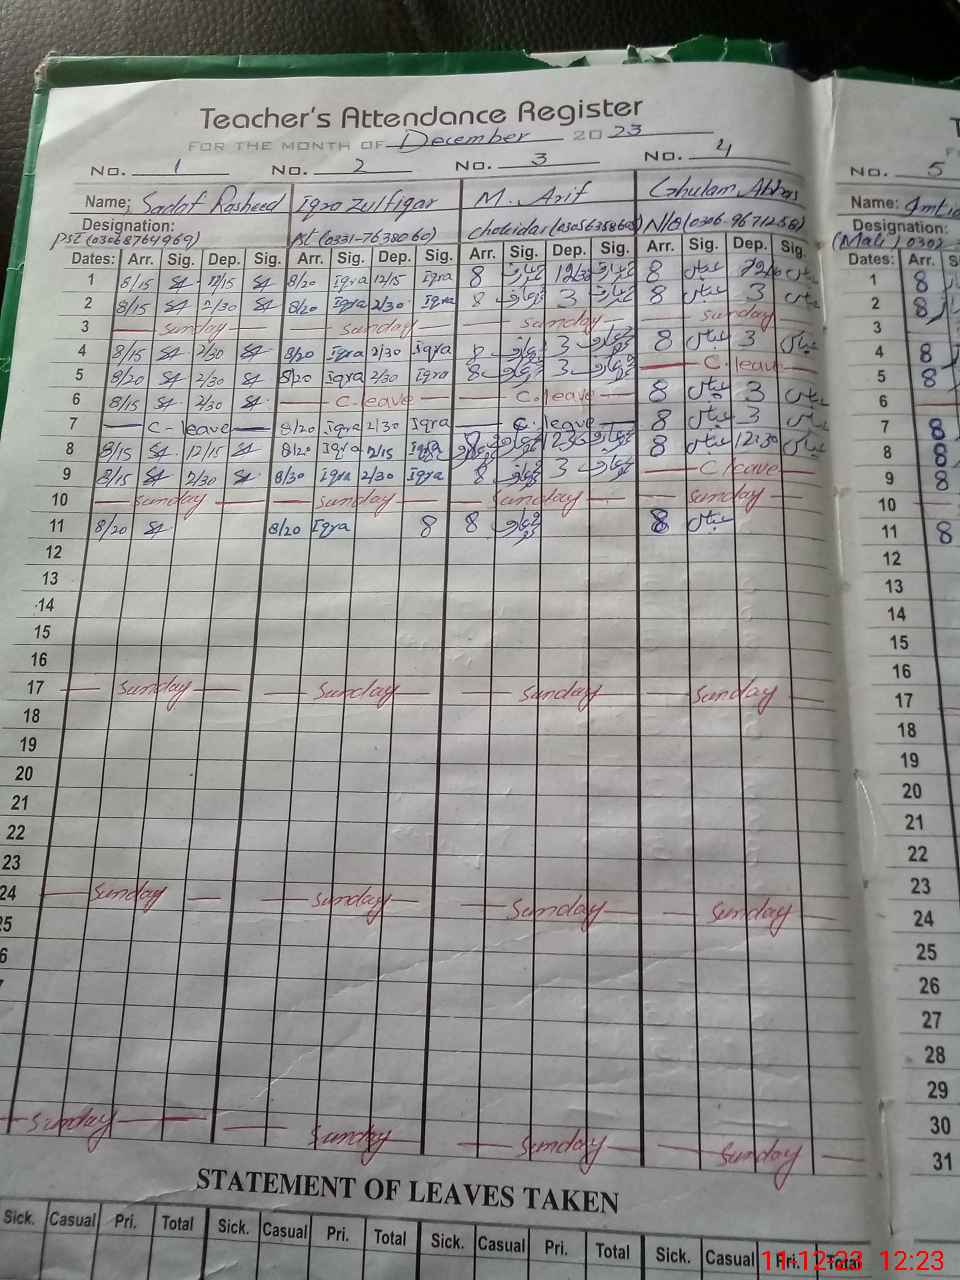 Teacher's Attendance Register
FOR THE MONTH OF December 2023
No. 1 No. 2 No. 3 No. 4 No. 5
Name; Sadaf Rasheed Iqra Zulfiqar M. Arif Ghulam Abbas Name:
Designation: Designation:
PST (03068764969) PST (0331-7638060) (Mali) 0302
Dates: Arr. Sig. Dep. Sig. Arr. Sig. Dep. Sig. Arr. Sig. Dep. Sig. Arr. Sig. Dep. Sig. Dates: Arr.
1 8/15 12/15 8/20 Iqra 12/15 Iqra 8 8 عباس 1 8
2 8/15 2/30 8/20 Iqra 2/30 Iqra 8 3 8 عباس 3 عباس 2 8
3 Sunday Sunday Sunday Sunday 3
4 8/15 2/30 8/20 Iqra 2/30 Iqra 8 3 8 عباس 3 عباس 4 8
5 8/20 2/30 8/20 Iqra 2/30 Iqra 8 3 C. leave 5 8
6 8/15 2/30 C. leave C. leave 8 عباس 3 عباس 6
7 C- leave 8/20 Iqra 2/30 Iqra C. leave 8 عباس 3 عباس 7 8
8 8/15 12/15 8/20 Iqra 12/15 Iqra 8 عباس 12:30 عباس 8 8
9 8/15 2/30 8/30 Iqra 2/30 Iqra 8 3 C leave 9 8
10 Sunday Sunday Sunday Sunday 10
11 8/20 8/20 Iqra 8 8 8 عباس 11 8
12 12
13 13
14 14
15 15
16 16
17 Sunday Sunday Sunday Sunday 17
18 18
19 19
20 20
21 21
22 22
23 23
24 Sunday Sunday Sunday Sunday 24
25 25
6 26
27
28
29
Sunday Sunday Sunday Sunday 30
31
STATEMENT OF LEAVES TAKEN
Sick. Casual Pri. Total Sick. Casual Pri. Total Sick. Casual Pri. Total Sick. Casual Pri. Total
11.12.23 12:23